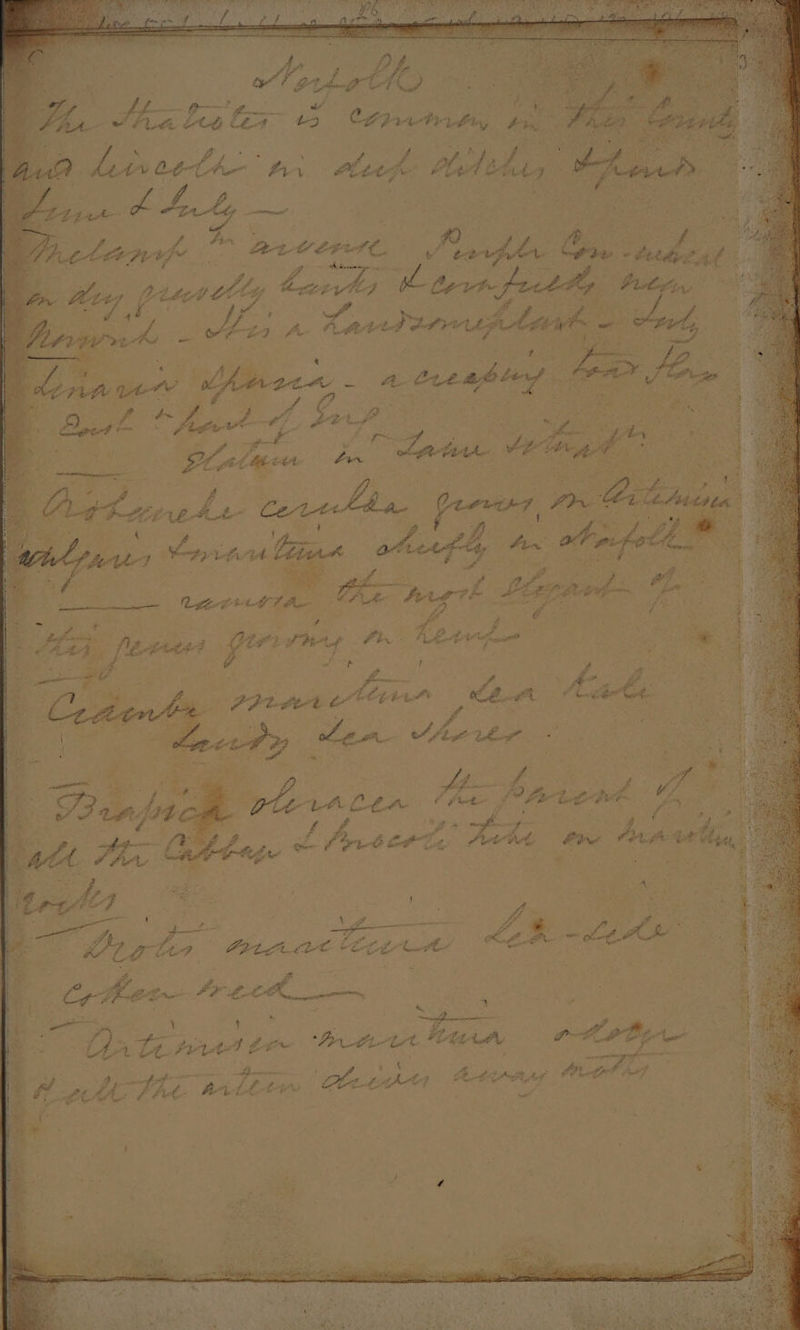 Norfolk
The Stratiotes is common in this County
and Lincoln in deep ditches & ponds
June & July —
Melamp^m arvense Purple Cow-wheat
on dry gravelly banks & Cornfields near
Norwich - It is a handsome plant - July
Linaria Spuria - a creeping toad flax
East ^n part of Eng^d
Elatine in same situat^n
Orobanche Cerulea grows on Artemisia
vulgaris & maritima chiefly in Norfolk
ramosa the most elegant of
this genus growing on hemp
Crambe maritima Sea Kale
Sandy Sea Shores .
Brassica oleracea the parent of
all the Cabbage & Brocoli tribe on maritime
rocks
Diotis maritima Sea-side
Cotton weed
Artimisia maritima
of all the drives away moths